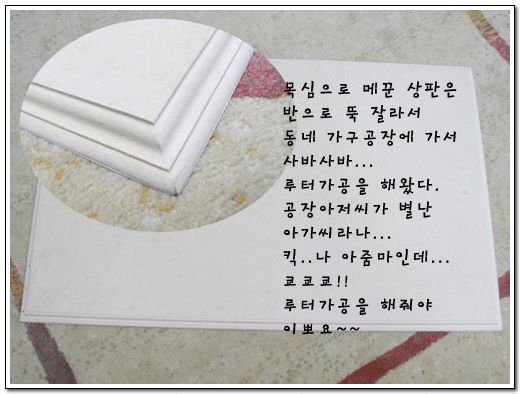 목심으로 메꾼 상판은
반으로 뚝 잘라서
동네 가구공장에 가서
사바사바...
루터가공을 해왔다.
공장아저씨가 별난
아가씨라나...
킥..나 아줌마인데...
쿄쿄쿄!!
루터가공을 해줘야
이뽀요~~